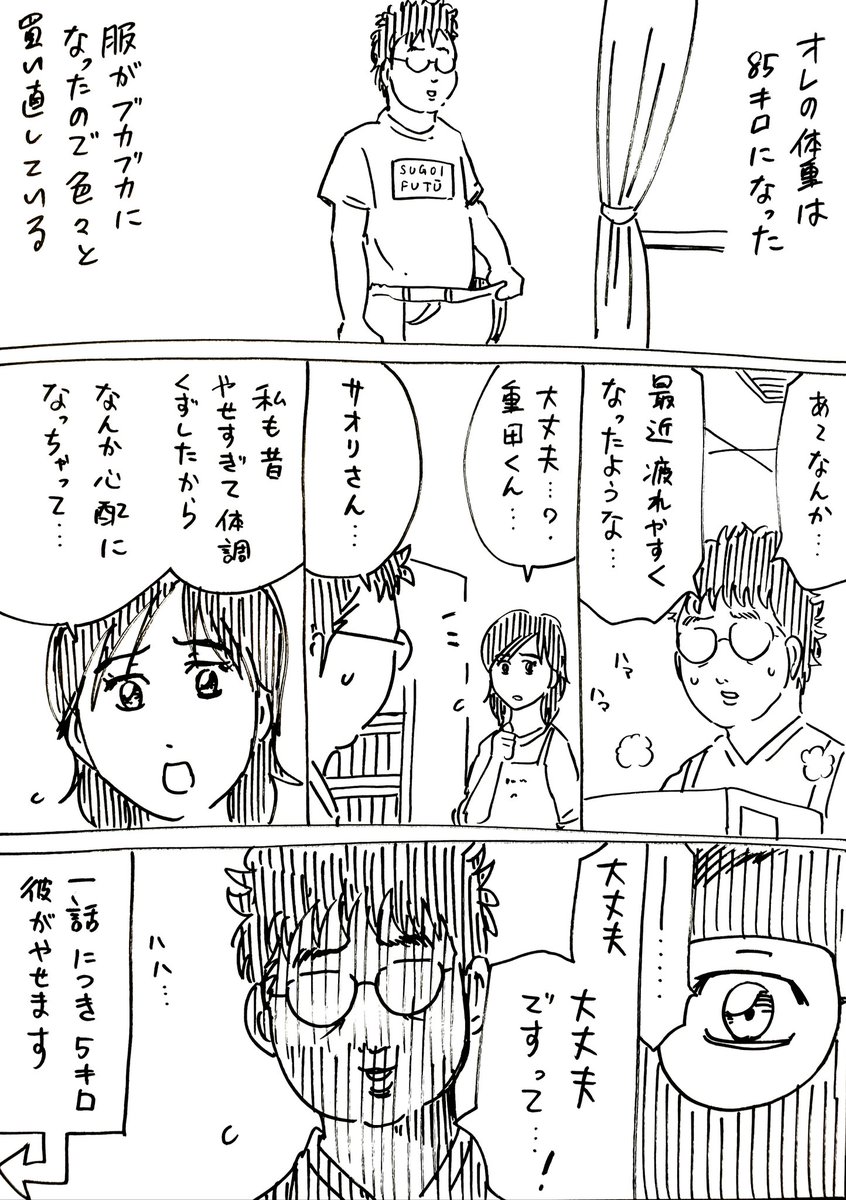 オレの体重は
85キロになった
SUGOI
FUTŪ
服がブカブカに
なったので色々と
買い直している
あてなんか…
最近疲れやすく
なったような…
ハマ
ハマ
大丈夫…?
重田くん…
サオリさん…
私も昔
やせすぎて体調
くずしたから
なんか心配に
なっちゃって…
……
大丈夫
大丈夫
ですって…!
ハハ…
一話につき5キロ
彼がやせます